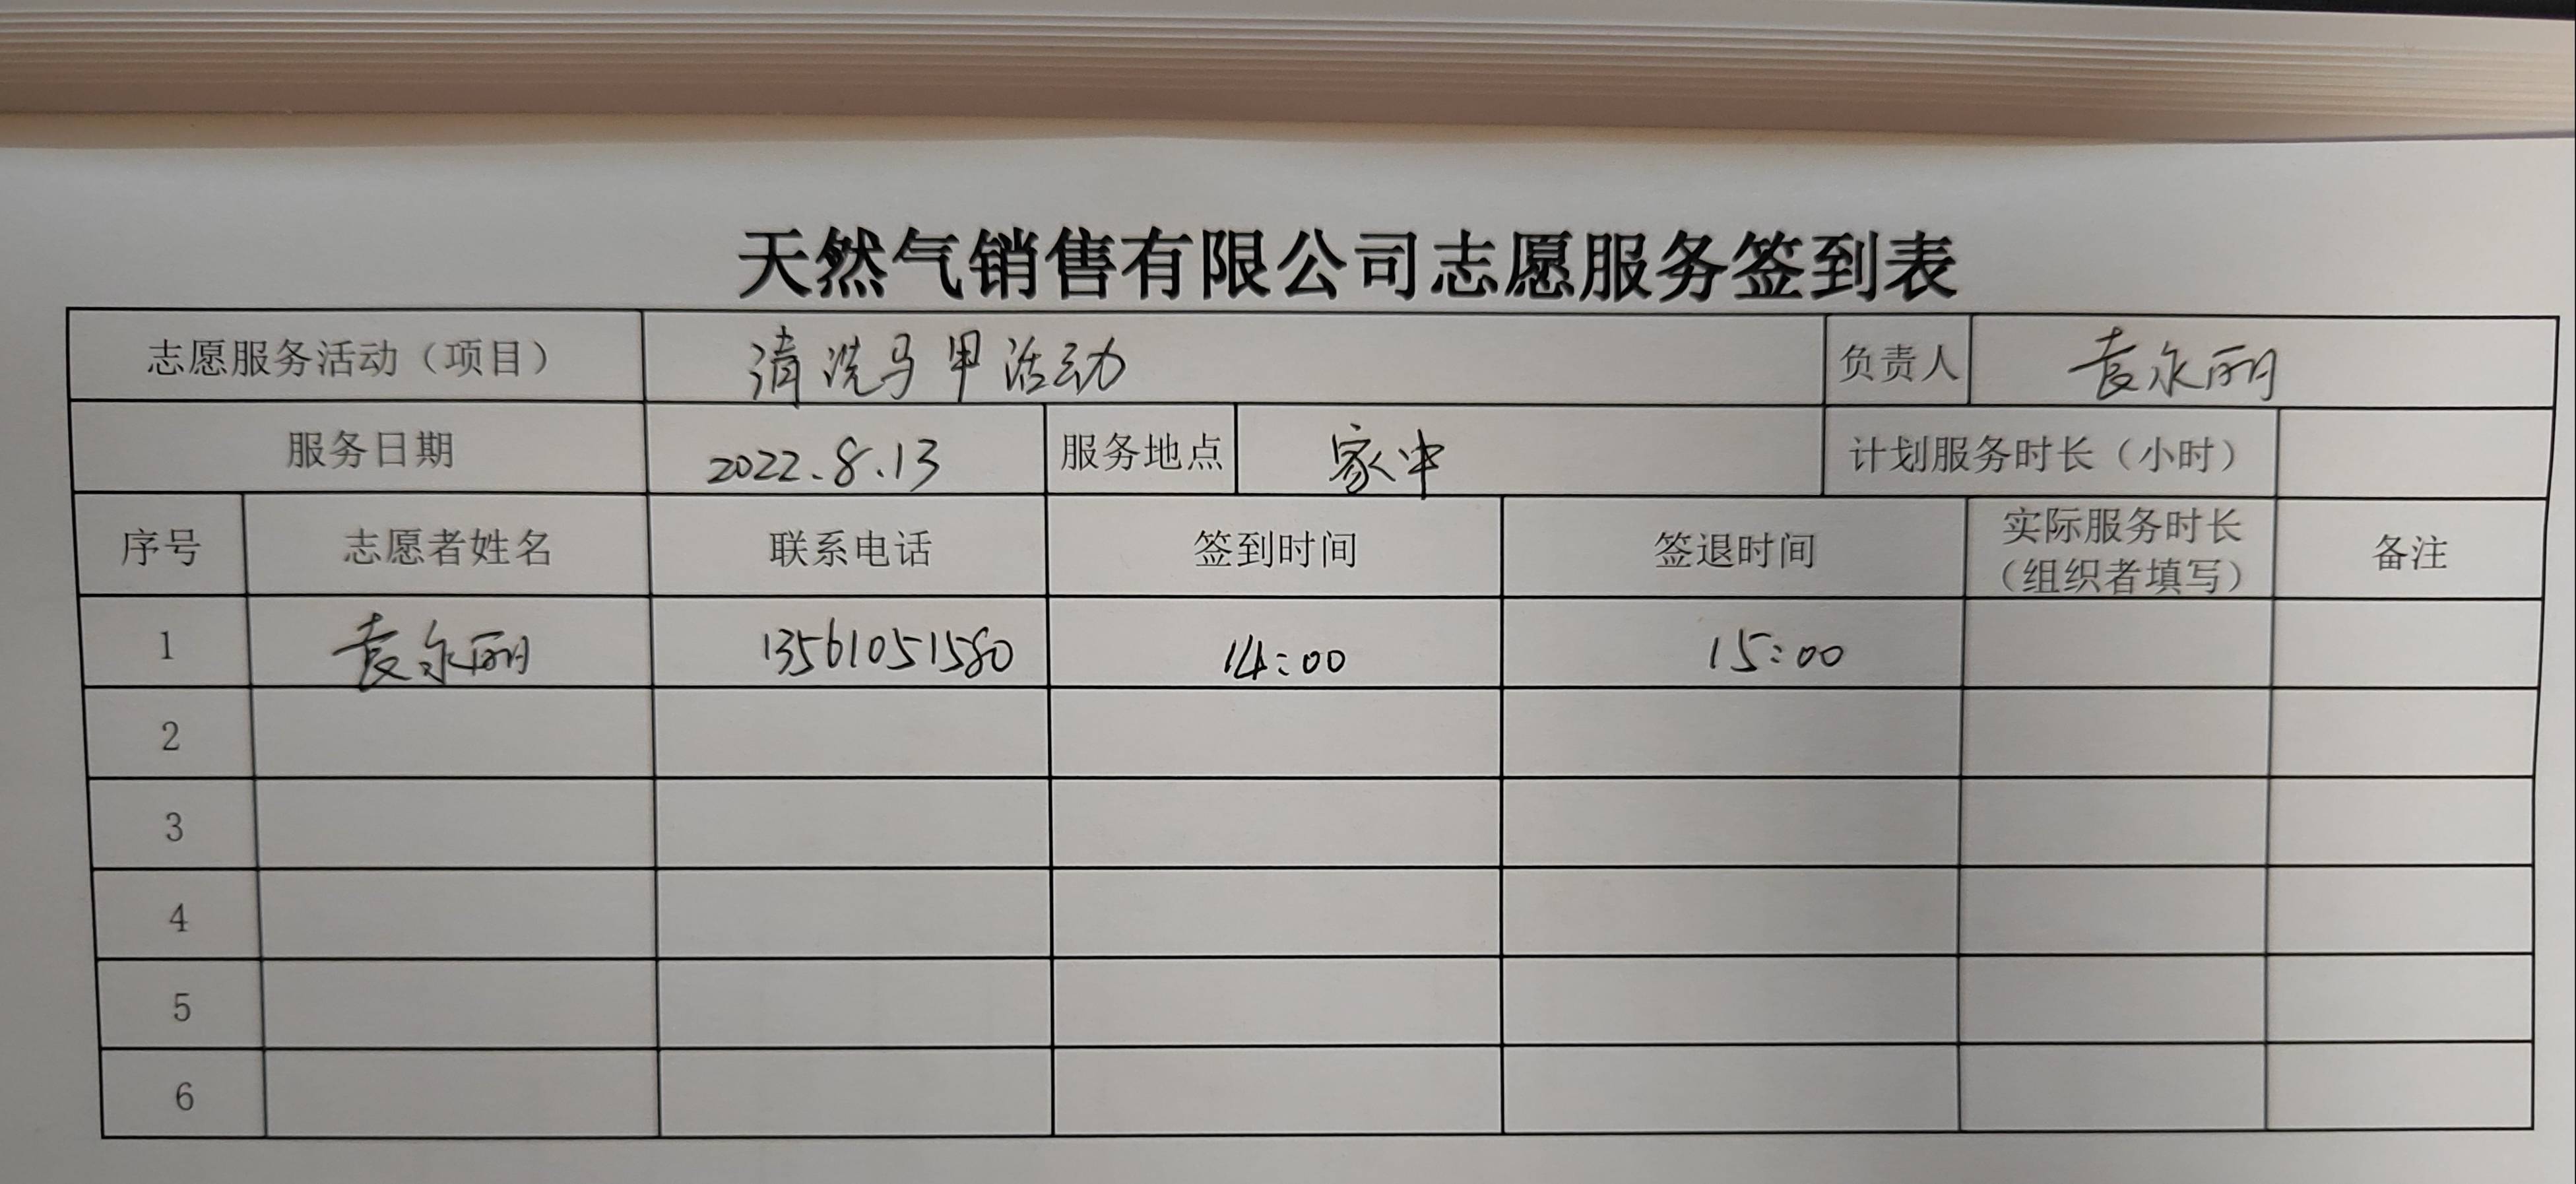 天然气销售有限公司志愿服务签到表
志愿服务活动（项目） 清洗马甲活动 负责人 袁永丽
服务日期 2022.8.13 服务地点 家中 计划服务时长（小时）
序号 志愿者姓名 联系电话 签到时间 签退时间 实际服务时长（组织者填写） 备注
1 袁永丽 13561051580 14:00 15:00
2
3
4
5
6